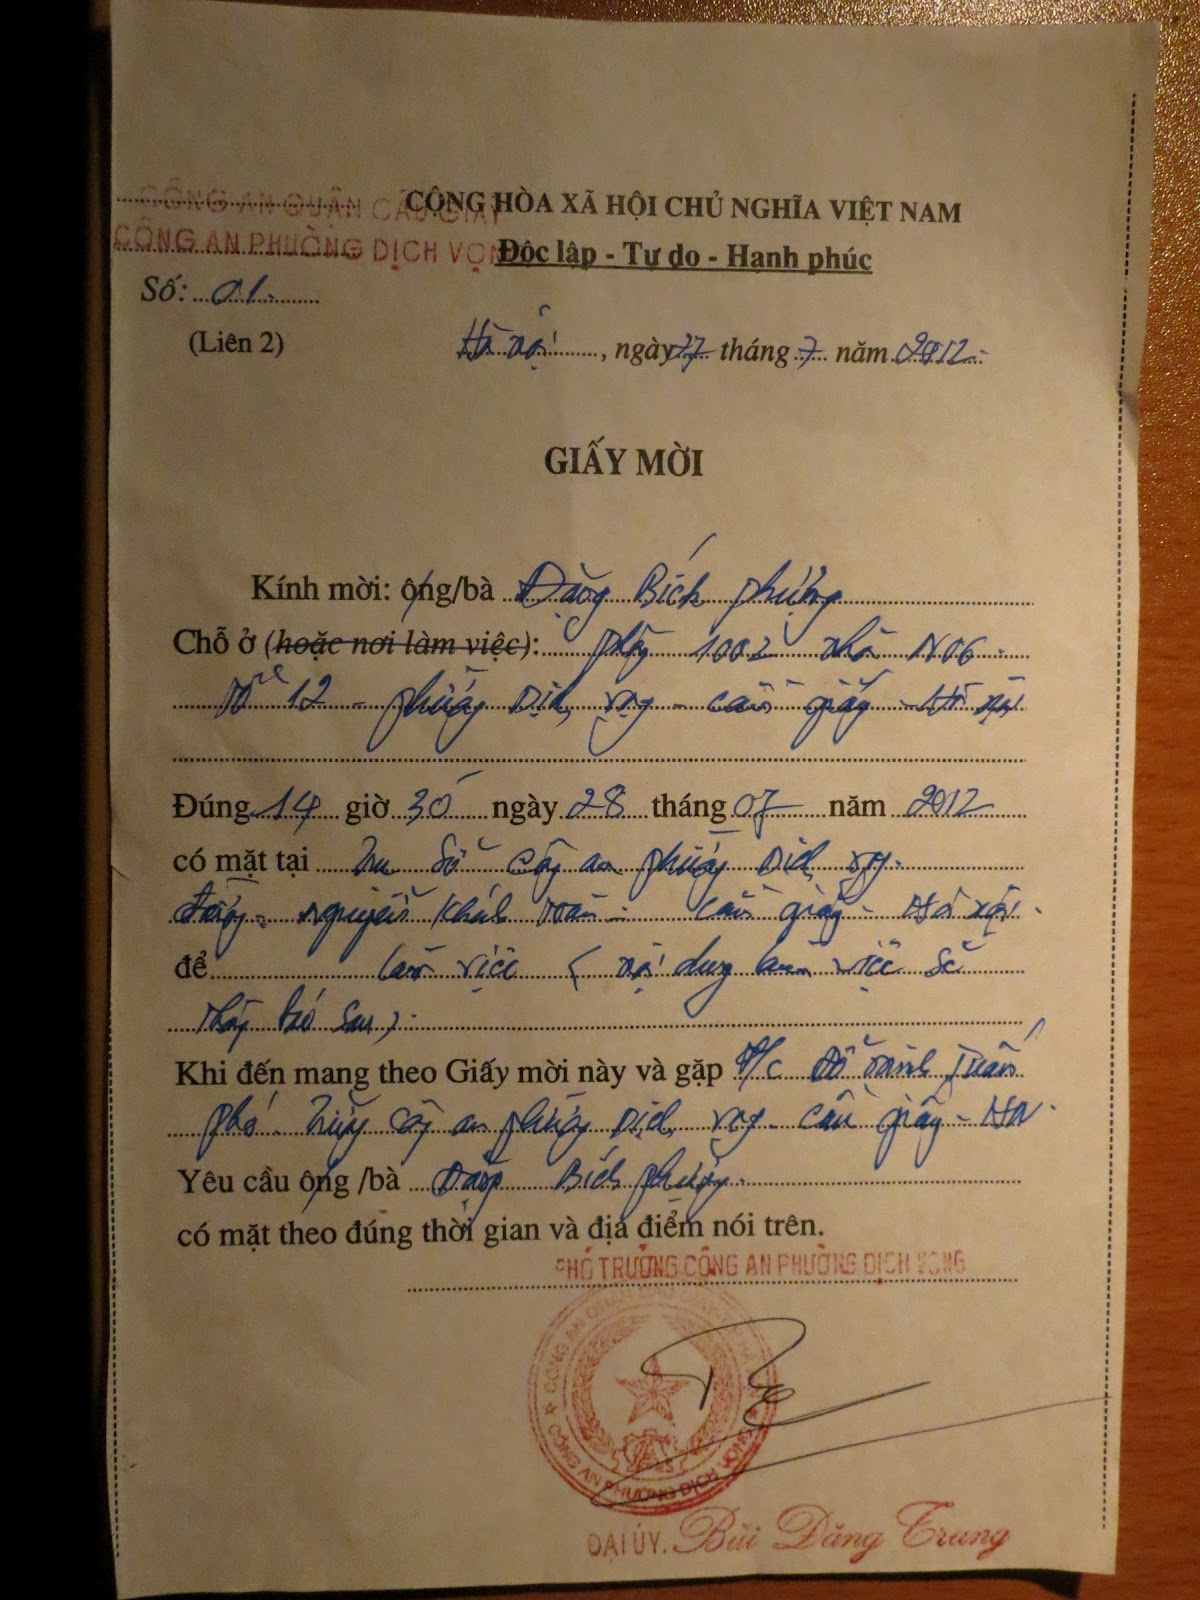 CÔNG AN QUẬN CẦU GIẤY
CÔNG AN PHƯỜNG DỊCH VỌNG
CỘNG HÒA XÃ HỘI CHỦ NGHĨA VIỆT NAM
Độc lập - Tự do - Hạnh phúc
Số: 01
(Liên 2)
Hà Nội, ngày 27 tháng 7 năm 2012
GIẤY MỜI
Kính mời: ông/bà Đặng Bích Phượng
Chỗ ở (hoặc nơi làm việc): phòng 1002 nhà N06
tổ 12 - phường Dịch Vọng - Cầu Giấy - Hà Nội
Đúng 14 giờ 30 ngày 28 tháng 07 năm 2012
có mặt tại Trụ Sở Công an phường Dịch Vọng
đường Nguyễn Khánh Toàn - Cầu Giấy - Hà Nội
để làm việc (nội dung làm việc sẽ
thông báo sau)
Khi đến mang theo Giấy mời này và gặp Đ/c Đỗ Tuấn
phó trưởng công an phường Dịch Vọng Cầu Giấy - HN
Yêu cầu ông /bà Đặng Bích Phượng
có mặt theo đúng thời gian và địa điểm nói trên.
PHÓ TRƯỞNG CÔNG AN PHƯỜNG DỊCH VỌNG
CÔNG AN PHƯỜNG DỊCH VỌNG
ĐẠI ÚY. Bùi Đăng Trung